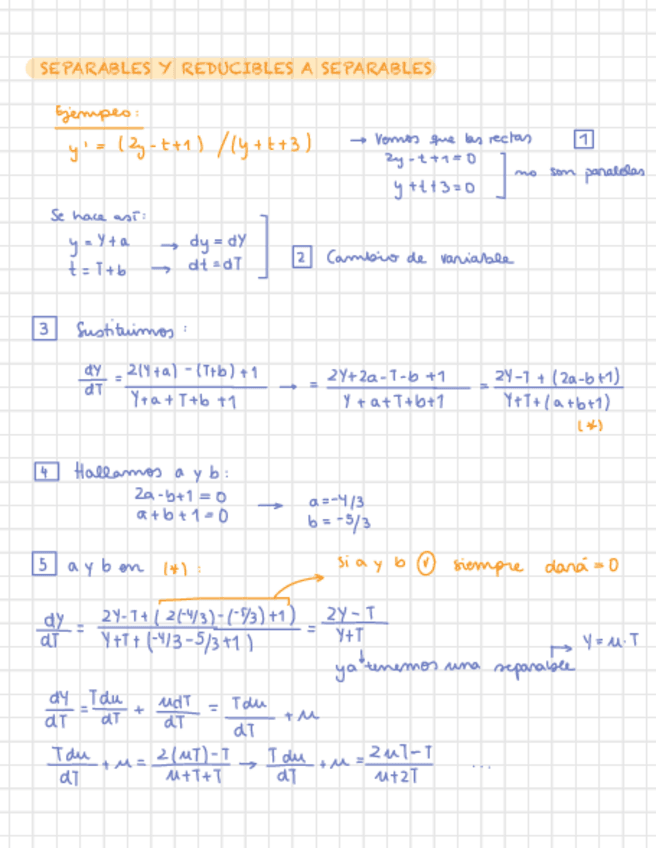 SEPARABLES Y REDUCIBLES A SEPARABLES
Ejemplo:
y' = (2y - t + 1) / (y + t + 3) → Vemos que las rectas 1
2y - t + 1 = 0
y + t + 3 = 0 ] no son paralelas
Se hace así:
y = Y + a → dy = dY
t = T + b → dt = dT ] 2 Cambio de variable
3 Sustituimos:
dY/dT = (2(Y+a) - (T+b) + 1)/(Y + a + T + b + 1) → = (2Y + 2a - T - b + 1)/(Y + a + T + b + 1) = (2Y - T + (2a - b + 1))/(Y + T + (a + b + 1))
(*)
4 Hallamos a y b:
2a - b + 1 = 0 → a = -4/3
a + b + 1 = 0 b = -5/3
5 a y b en (*): si a y b ✓ siempre dará = 0
dY/dT = (2Y - T + (2(-4/3) - (-5/3) + 1))/(Y + T + (-4/3 - 5/3 + 1)) = (2Y - T)/(Y + T)
ya tenemos una separable → Y = u · T
dY/dT = Tdu/dT + udT/dT = Tdu/dT + u
Tdu/dT + u = (2(uT) - T)/(u + T + T) → Tdu/dT + u = (2uT - T)/(u + 2T) ...